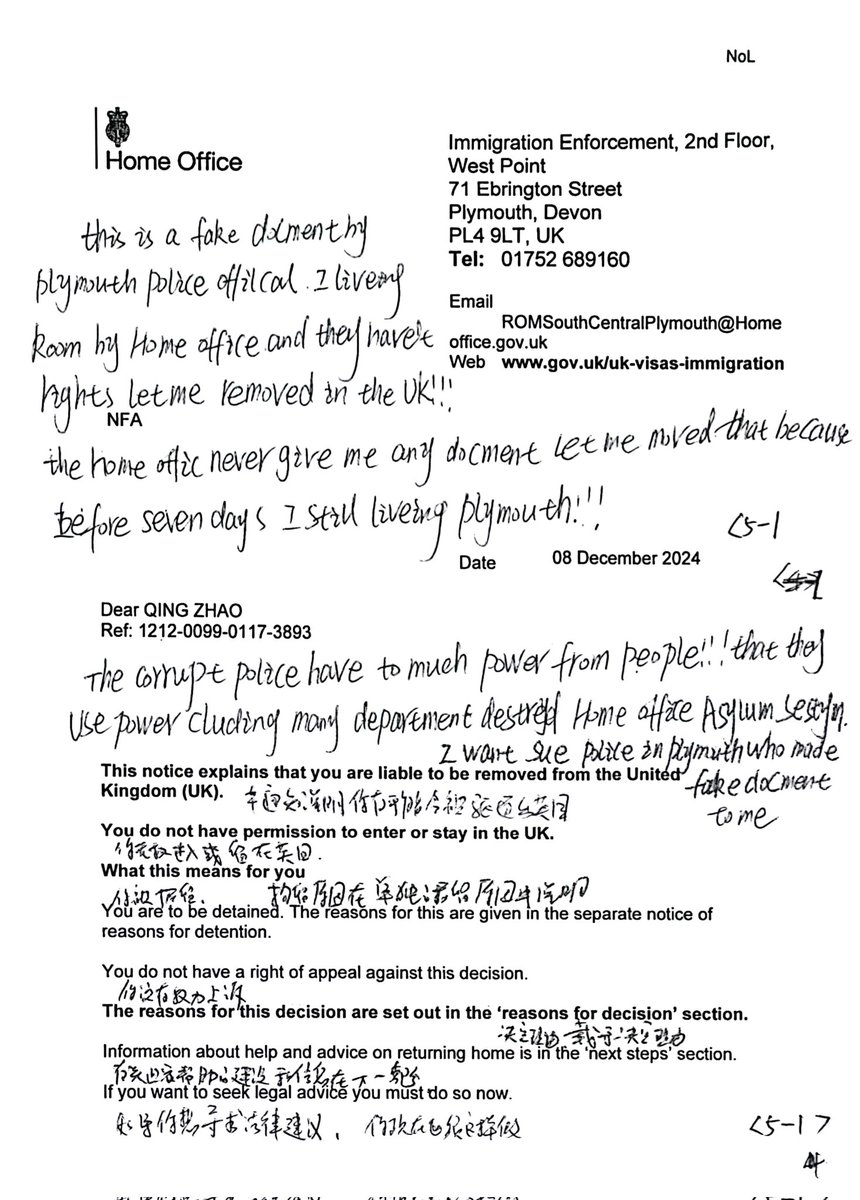 NoL
Home Office
Immigration Enforcement, 2nd Floor,
West Point
71 Ebrington Street
Plymouth, Devon
PL4 9LT, UK
Tel: 01752 689160
Email
ROMSouthCentralPlymouth@Home
office.gov.uk
Web www.gov.uk/uk-visas-immigration
this is a fake docment by
plymouth police offilcal. I liveing
Room by Home office and they have't
rights let me removed in the UK!!!
NFA
the home offic never give me any docment let me moved that because
before seven days I still liveing plymouth!!!
<5-1
Date 08 December 2024
Dear QING ZHAO
Ref: 1212-0099-0117-3893
The corrupt police have to much power from people!!! that they
use power cluding many department Home office Asylum
I want sue police in plymouth who made
fake docment
to me
This notice explains that you are liable to be removed from the United
Kingdom (UK).
You do not have permission to enter or stay in the UK.
你无权进入或留在英国.
What this means for you
You are to be detained. The reasons for this are given in the separate notice of
reasons for detention.
You do not have a right of appeal against this decision.
你没有权力上诉
The reasons for this decision are set out in the ‘reasons for decision’ section.
Information about help and advice on returning home is in the ‘next steps’ section.
If you want to seek legal advice you must do so now.
如果你想寻求法律建议, 你现在必须这样做
<5-1>